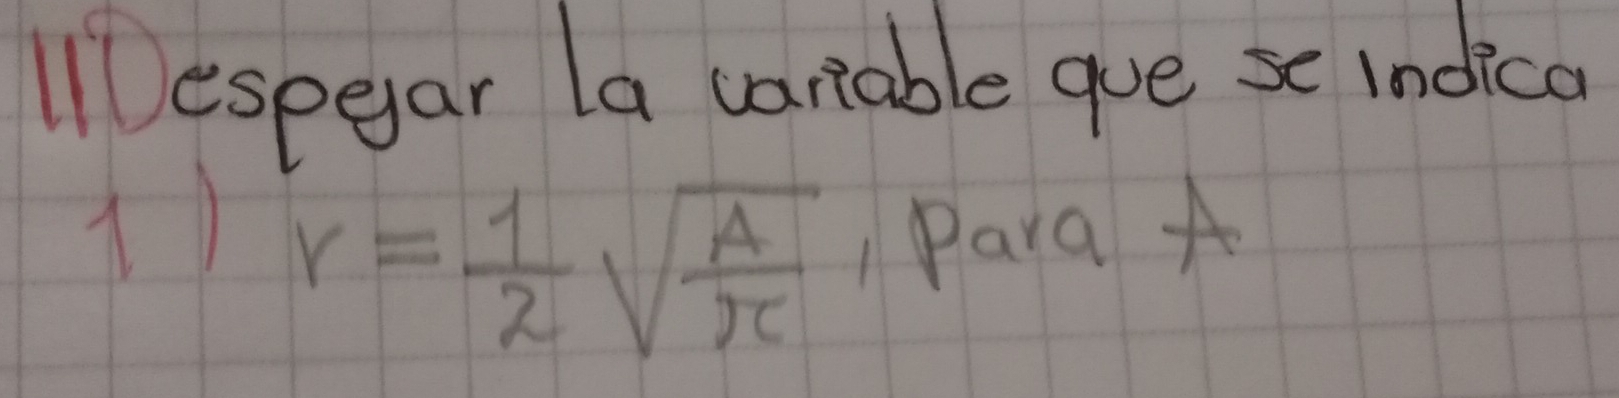 II Despejar la variable que se Indica
1) r = 1/2 √(A/π), Para A